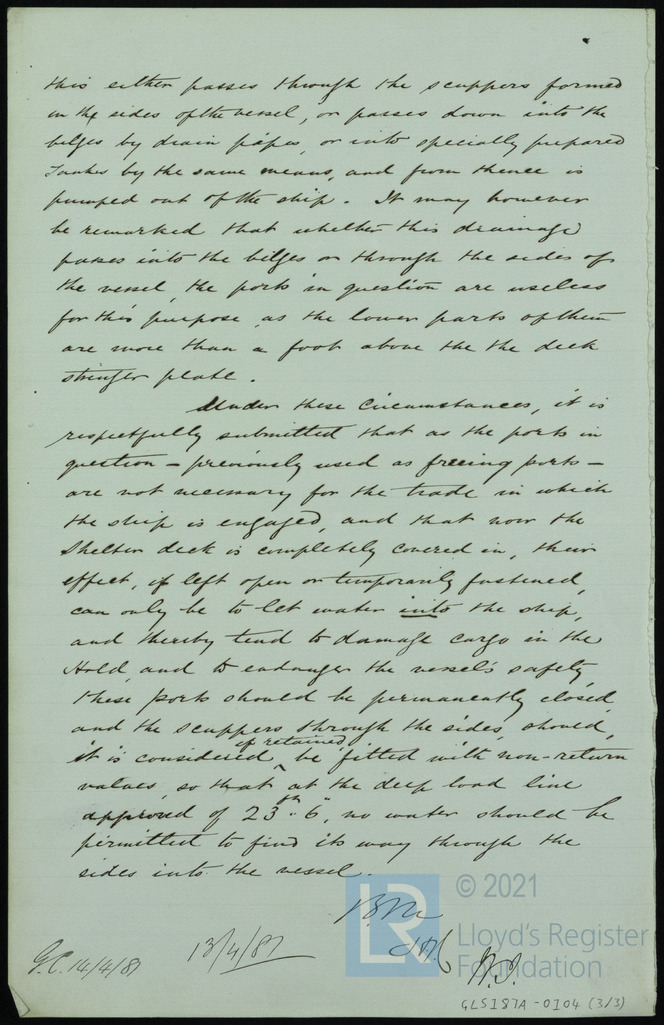 this either passes through the scuppers formed
in the sides of the vessel, or passes down into the
bilges by drain pipes, or into specially prepared
Tanks by the same means, and from thence is
pumped out of the ship. It may however
be remarked that whether this drainage
passes into the bilges or through the sides of
the vessel, the ports in question are useless
for this purpose, as the lower parts of them
are more than a foot above the the deck
stringer plate.
Under these circumstances, it is
respectfully submitted that as the ports in
question – previously used as freeing ports –
are not necessary for the trade in which
the ship is engaged, and that now the
Shelter deck is completely covered in, their
effect, if left open or temporarily fastened,
can only be to let water into the ship,
and thereby tend to damage cargo in the
Hold, and to endanger the vessel's safety,
these ports should be permanently closed,
and the scuppers through the sides, should,
if retained,
it is considered, be fitted with non-return
valves, so that at the deep load line
approved of 23ft. 6", no water should be
permitted to find its way through the
sides into the vessel.
13/4/87
G.C. 14/4/87
© 2021
LR
Lloyd's Register
Foundation
GLS187A-0104 (3/3)